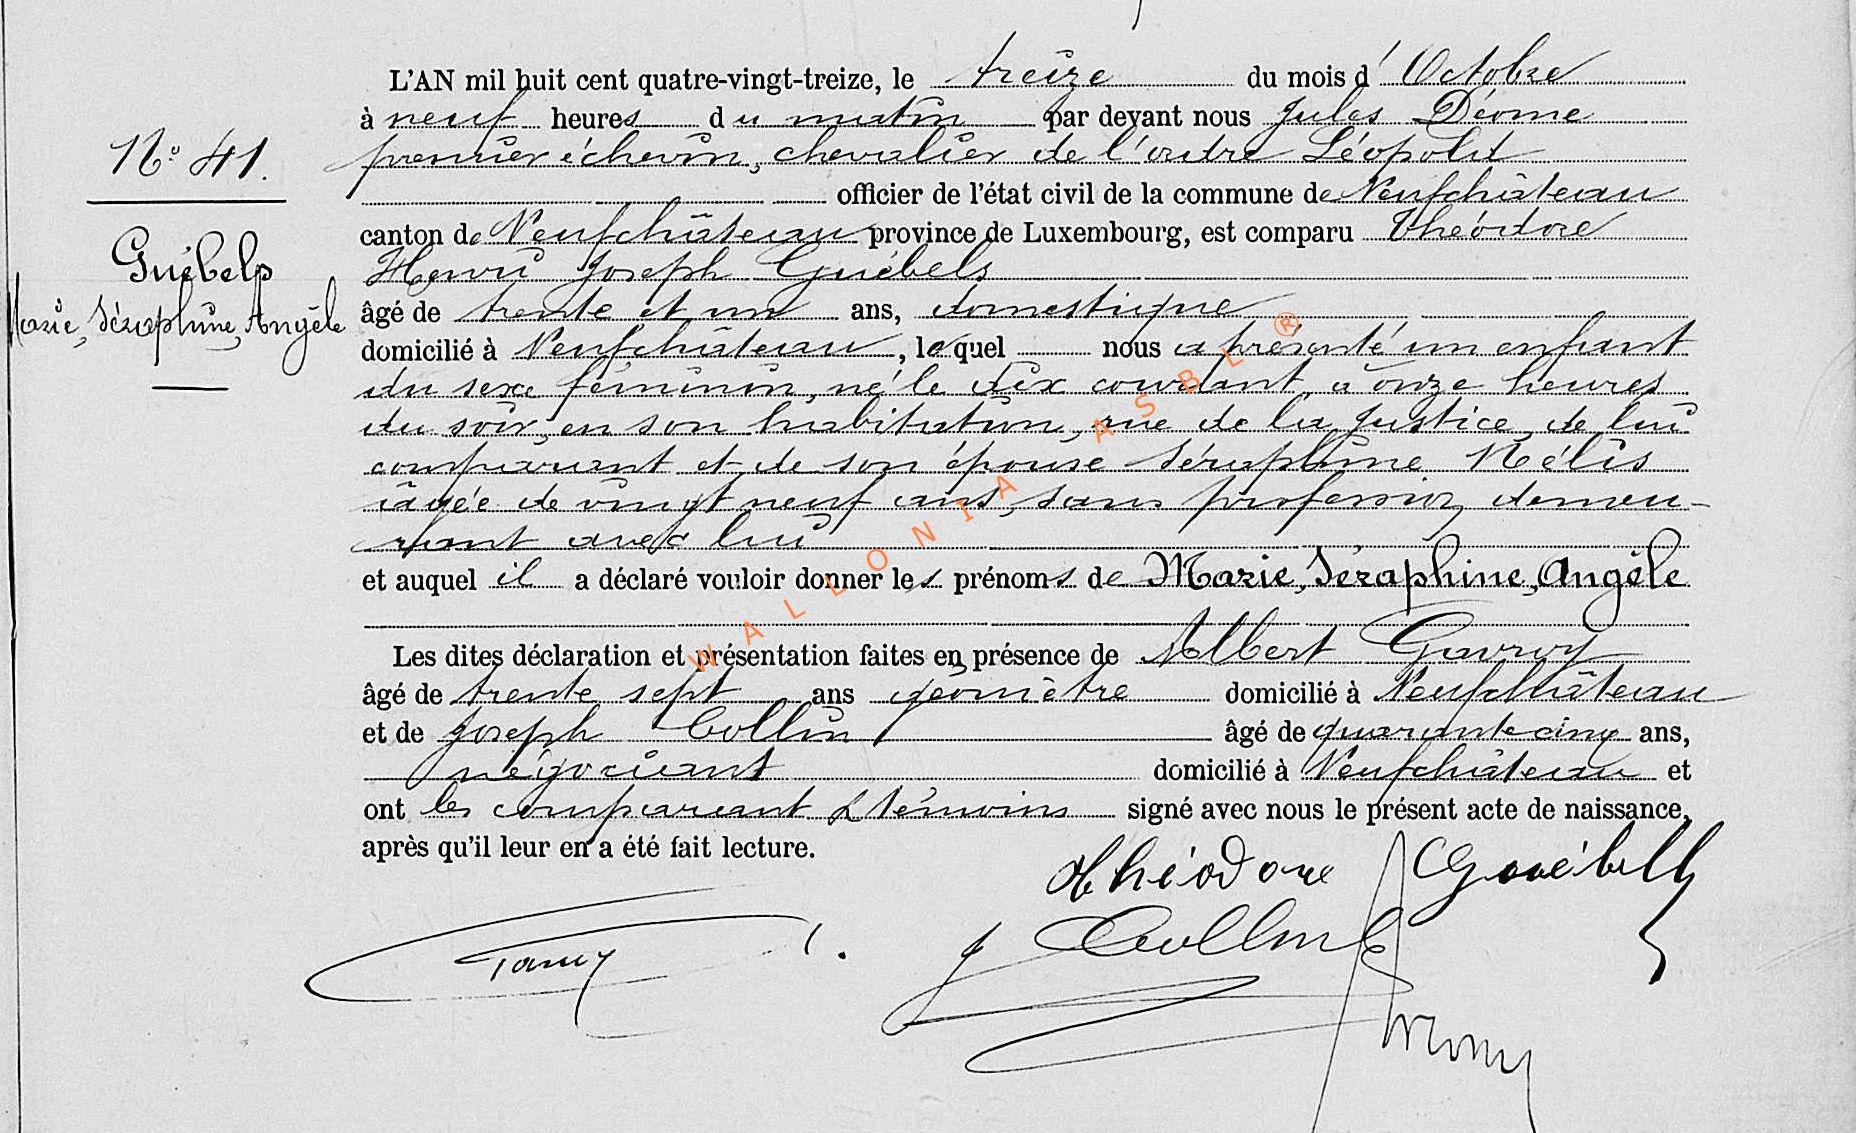 L'AN mil huit cent quatre-vingt-treize, le treize du mois d'Octobre
à neuf heures du matin par devant nous Jules Déome
premier échevin, chevalier de l'ordre Léopold
officier de l'état civil de la commune de Neufchâteau
canton de Neufchâteau province de Luxembourg, est comparu Théodore
Henri Joseph Guébels
âgé de trente et un ans, domestique
domicilié à Neufchâteau, lequel nous a présenté un enfant
du sexe féminin, né le dix courant, à onze heures
du soir, en son habitation, rue de la Justice, de lui
comparant et de son épouse Séraphine Nélis
âgée de vingt neuf ans, sans profession, demeu-
rant avec lui
et auquel il a déclaré vouloir donner les prénoms de Marie, Séraphine, Angèle
Les dites déclaration et présentation faites en présence de Albert Gavroy
âgé de trente sept ans géomètre domicilié à Neufchâteau
et de Joseph Collin âgé de quarante cinq ans,
négociant domicilié à Neufchâteau et
ont les comparant & témoins signé avec nous le présent acte de naissance,
après qu'il leur en a été fait lecture.
Théodore Guébells
J Collin
N° 41.
Guébels
Marie, Séraphine, Angèle
WALLONIA ASBL ®